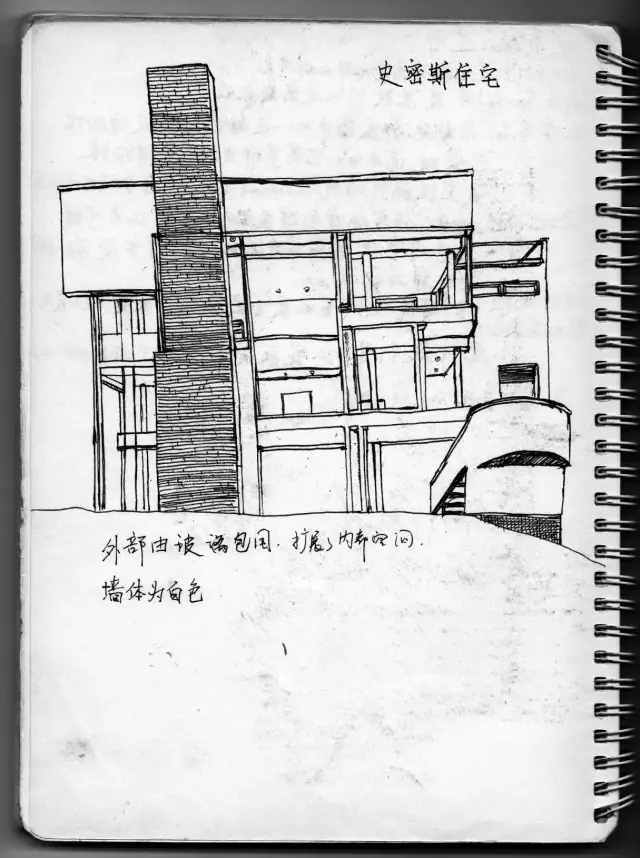 史密斯住宅
外部由玻璃包围.扩展了内部空间.
墙体为白色